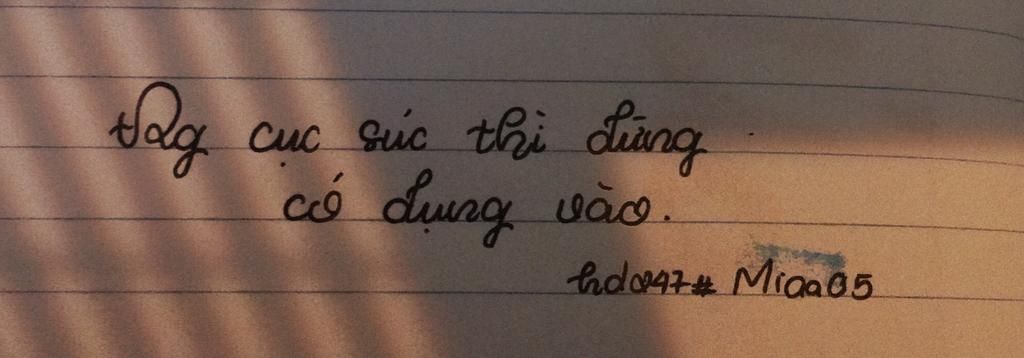 cục súc thì đừng
có đụng vào.
hd0947# Miaa05